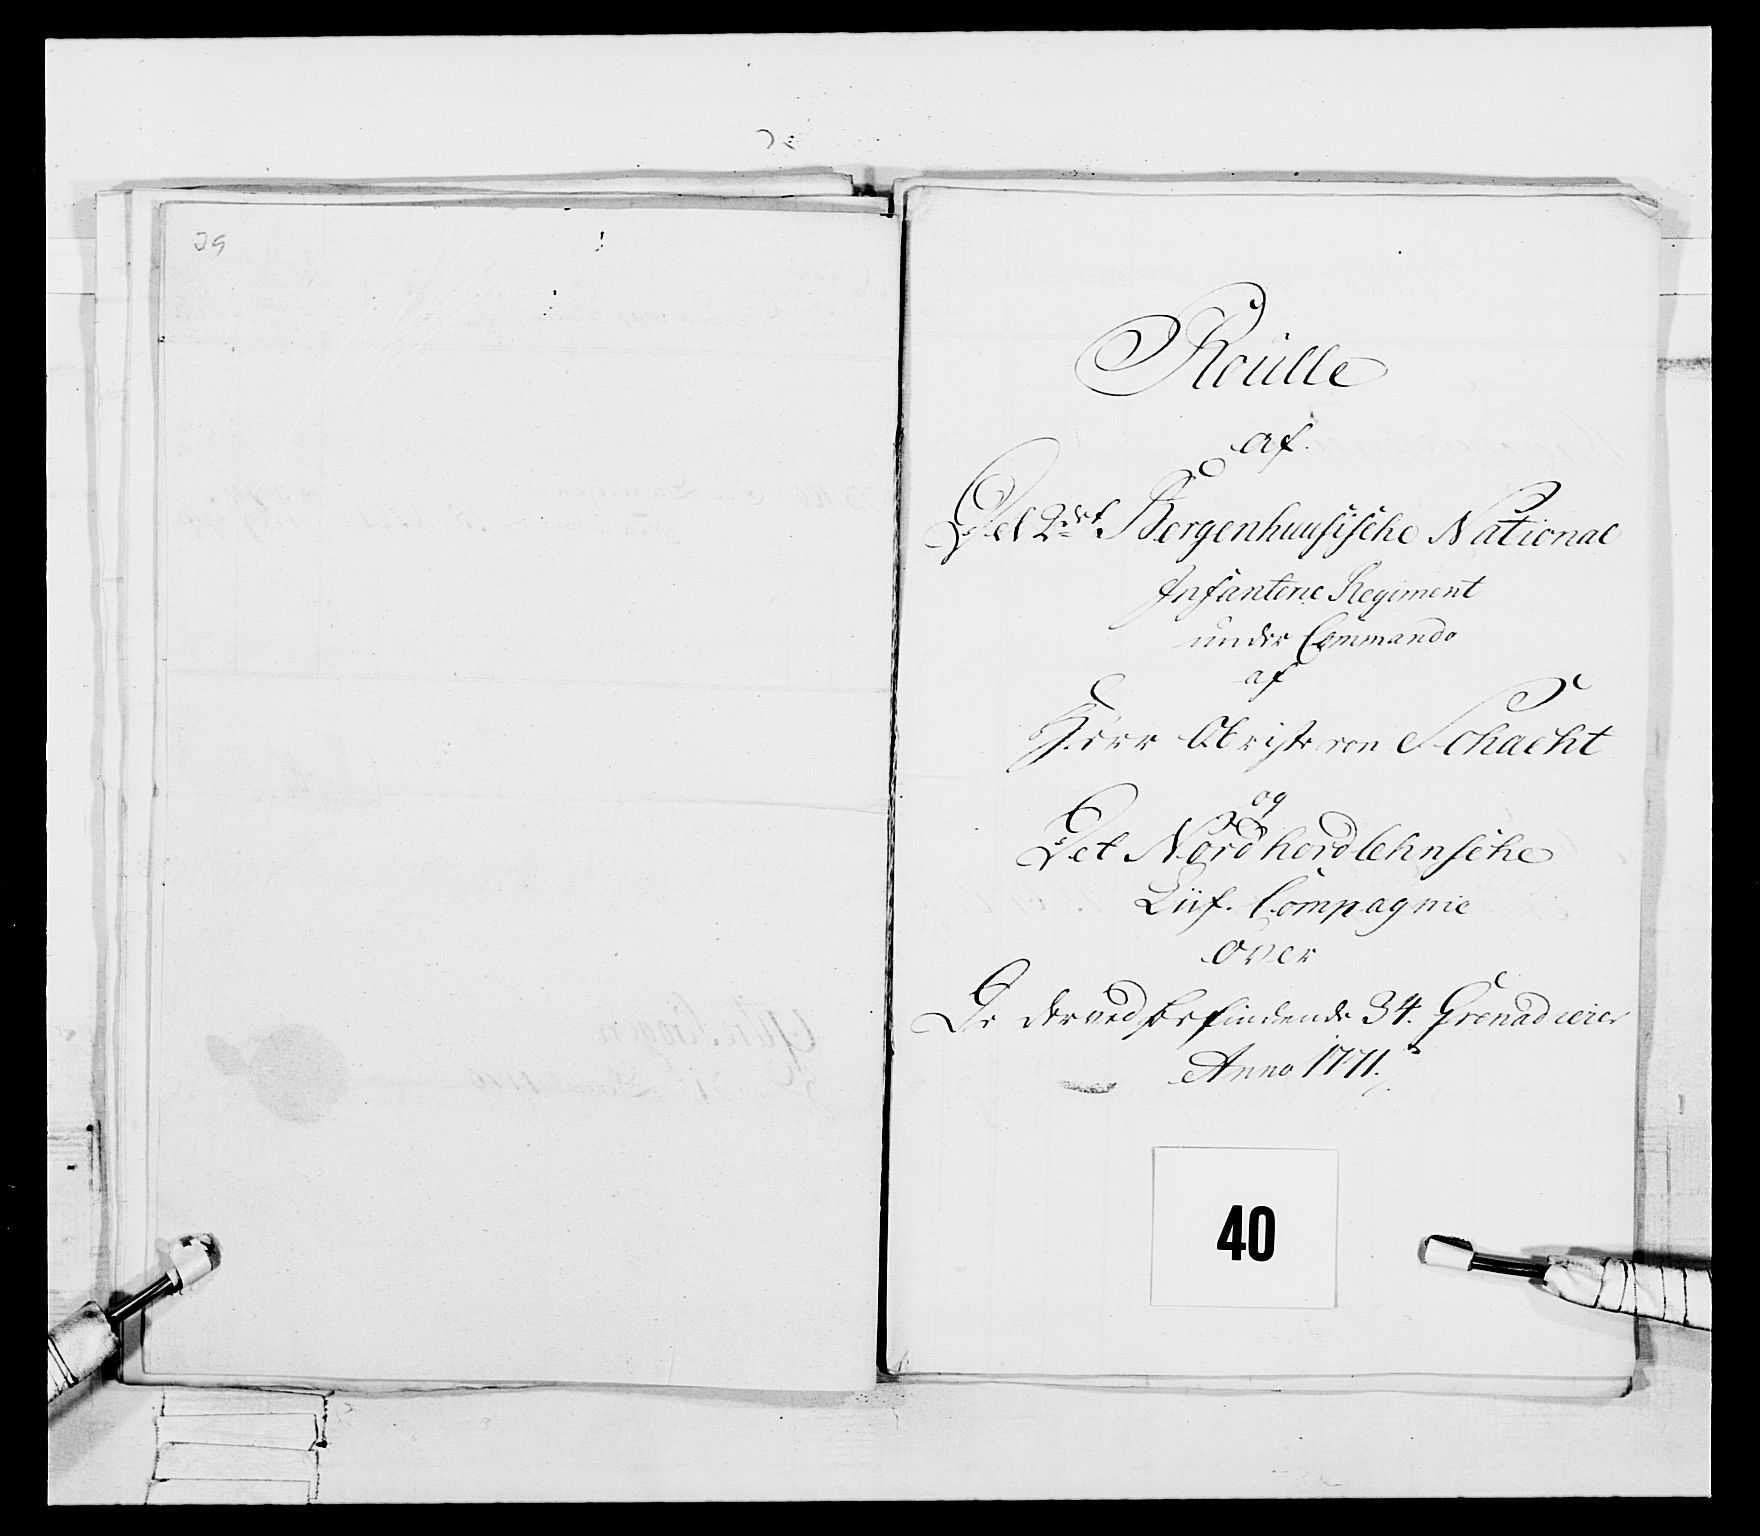 Roulle
af.
Det 2det Bergenhuusische National
Infanterie Regiment
under Commando
af
Herr Obriste von Schacht
og
Det Nordhordlehnsche
Liif. Compagnie
over
De derved befindende 34. Grenadierer
Anno 1771.
40